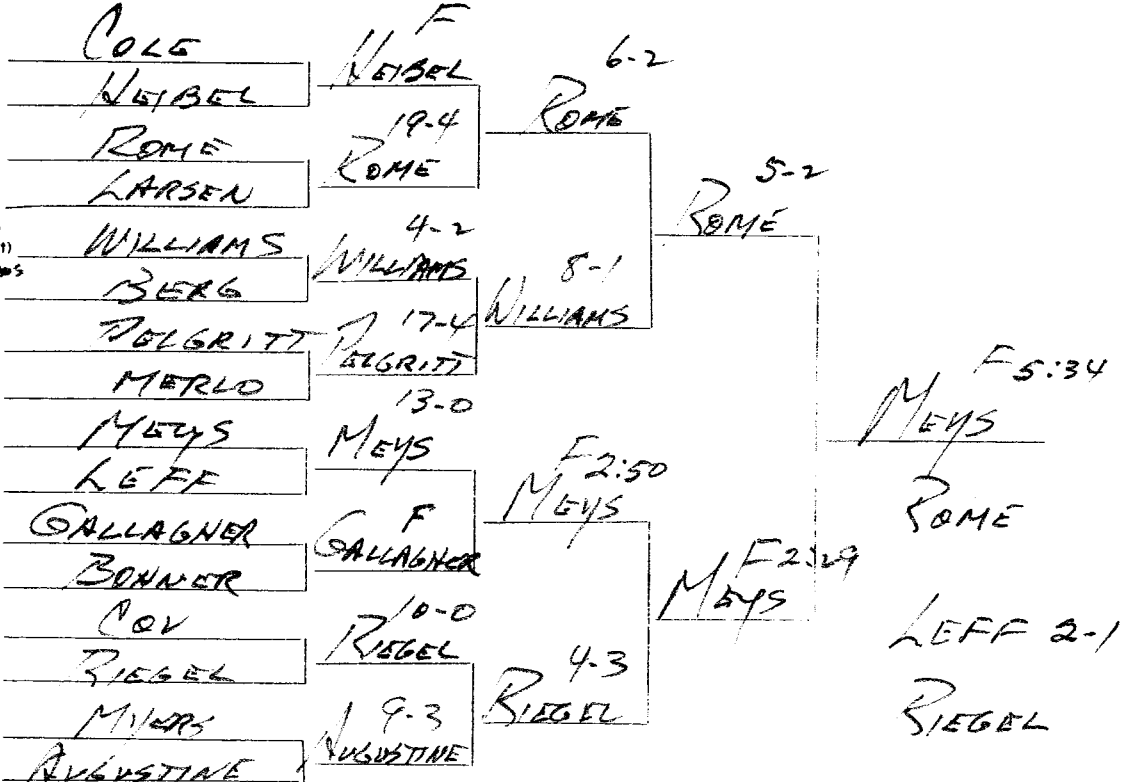 COLE
HEIBEL
ROME
LARSEN
WILLIAMS
BERG
DELGRITT
MERLO
MEYS
LEFF
GALLAGHER
BONNER
COV
RIEGEL
MYERS
AUGUSTINE
F
HEIBEL
19-4
ROME
4-2
WILLIAMS
17-4
DELGRITT
13-0
MEYS
F
GALLAGHER
10-0
RIEGEL
9-3
AUGUSTINE
6-2
ROME
8-1
WILLIAMS
F 2:50
MEYS
4-3
RIEGEL
5-2
ROME
F 2:29
MEYS
F 5:34
MEYS
ROME
LEFF 2-1
RIEGEL